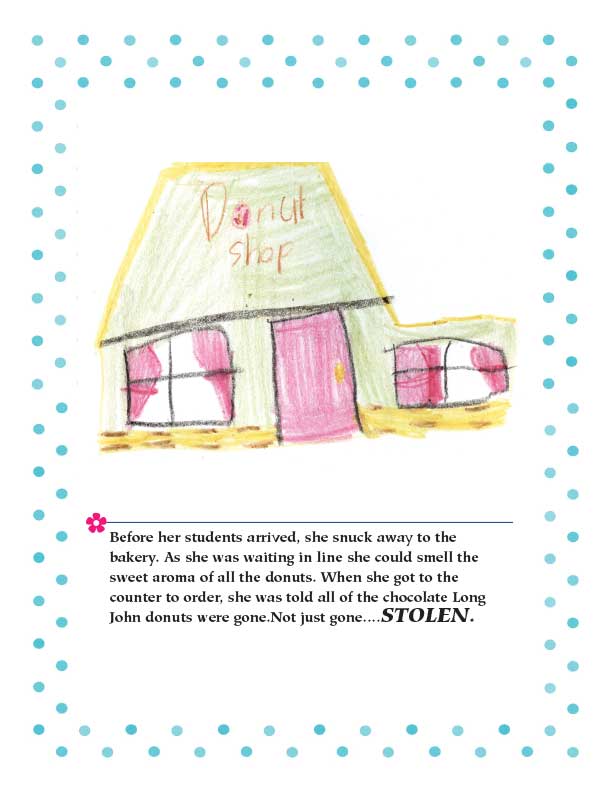 Donut
shop
Before her students arrived, she snuck away to the
bakery. As she was waiting in line she could smell the
sweet aroma of all the donuts. When she got to the
counter to order, she was told all of the chocolate Long
John donuts were gone.Not just gone....STOLEN.